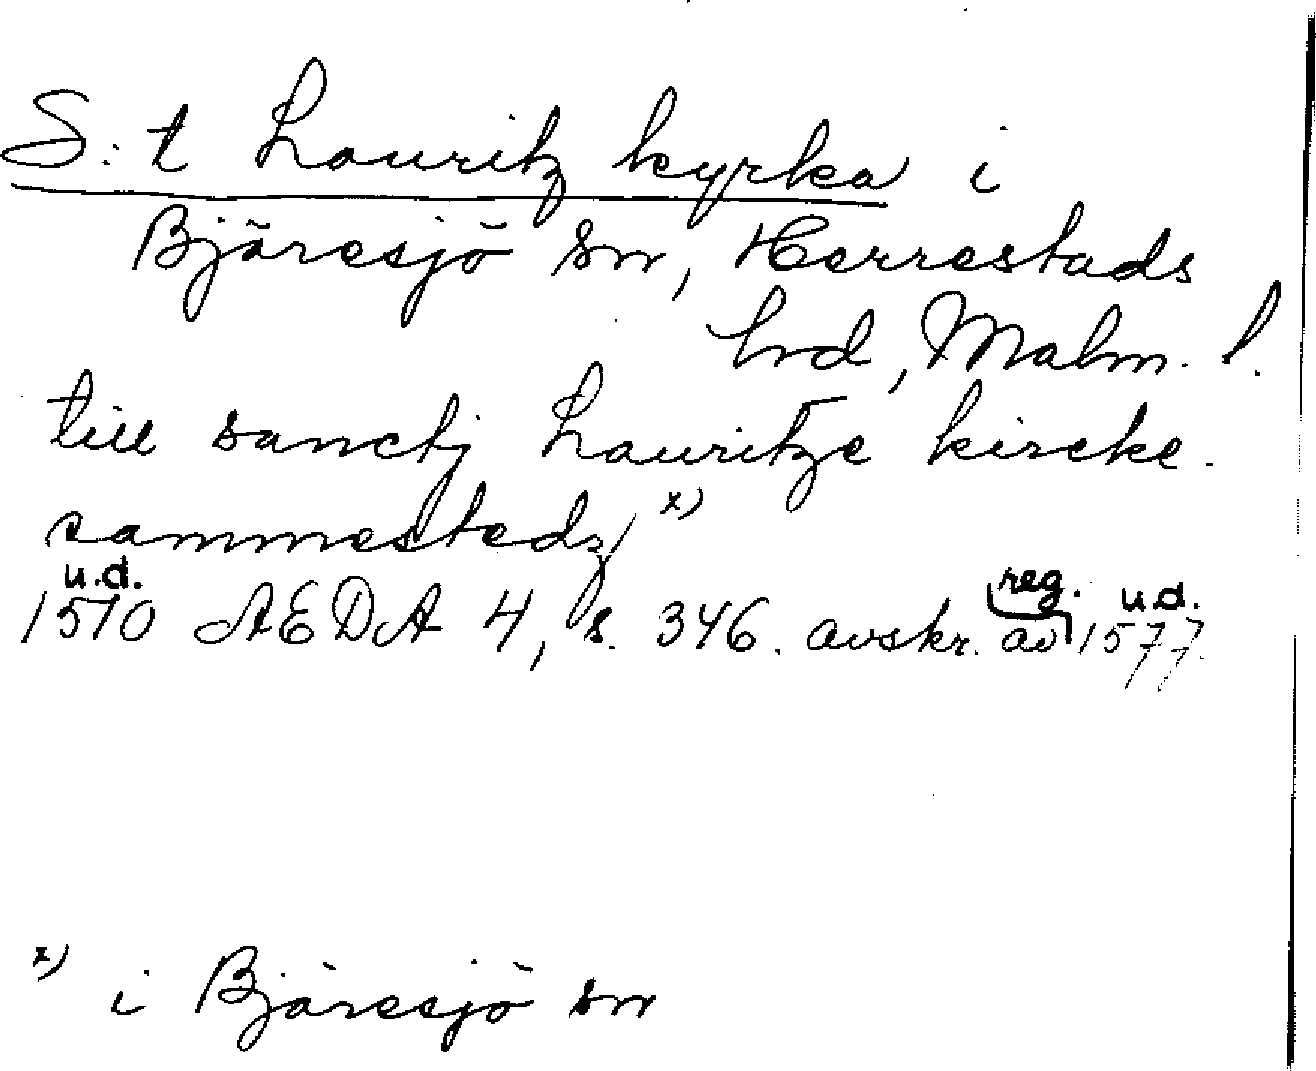 S:t Lauritz kyrka i
Bjäresjö sn, Herrestads
hrd, Malm. l.
till sanctj Lauritze kircke.
sammestedz x)
u.d. reg. u.d.
1570 AEDA 4, s. 346. avskr. av 1577.
x) i Bjäresjö sn